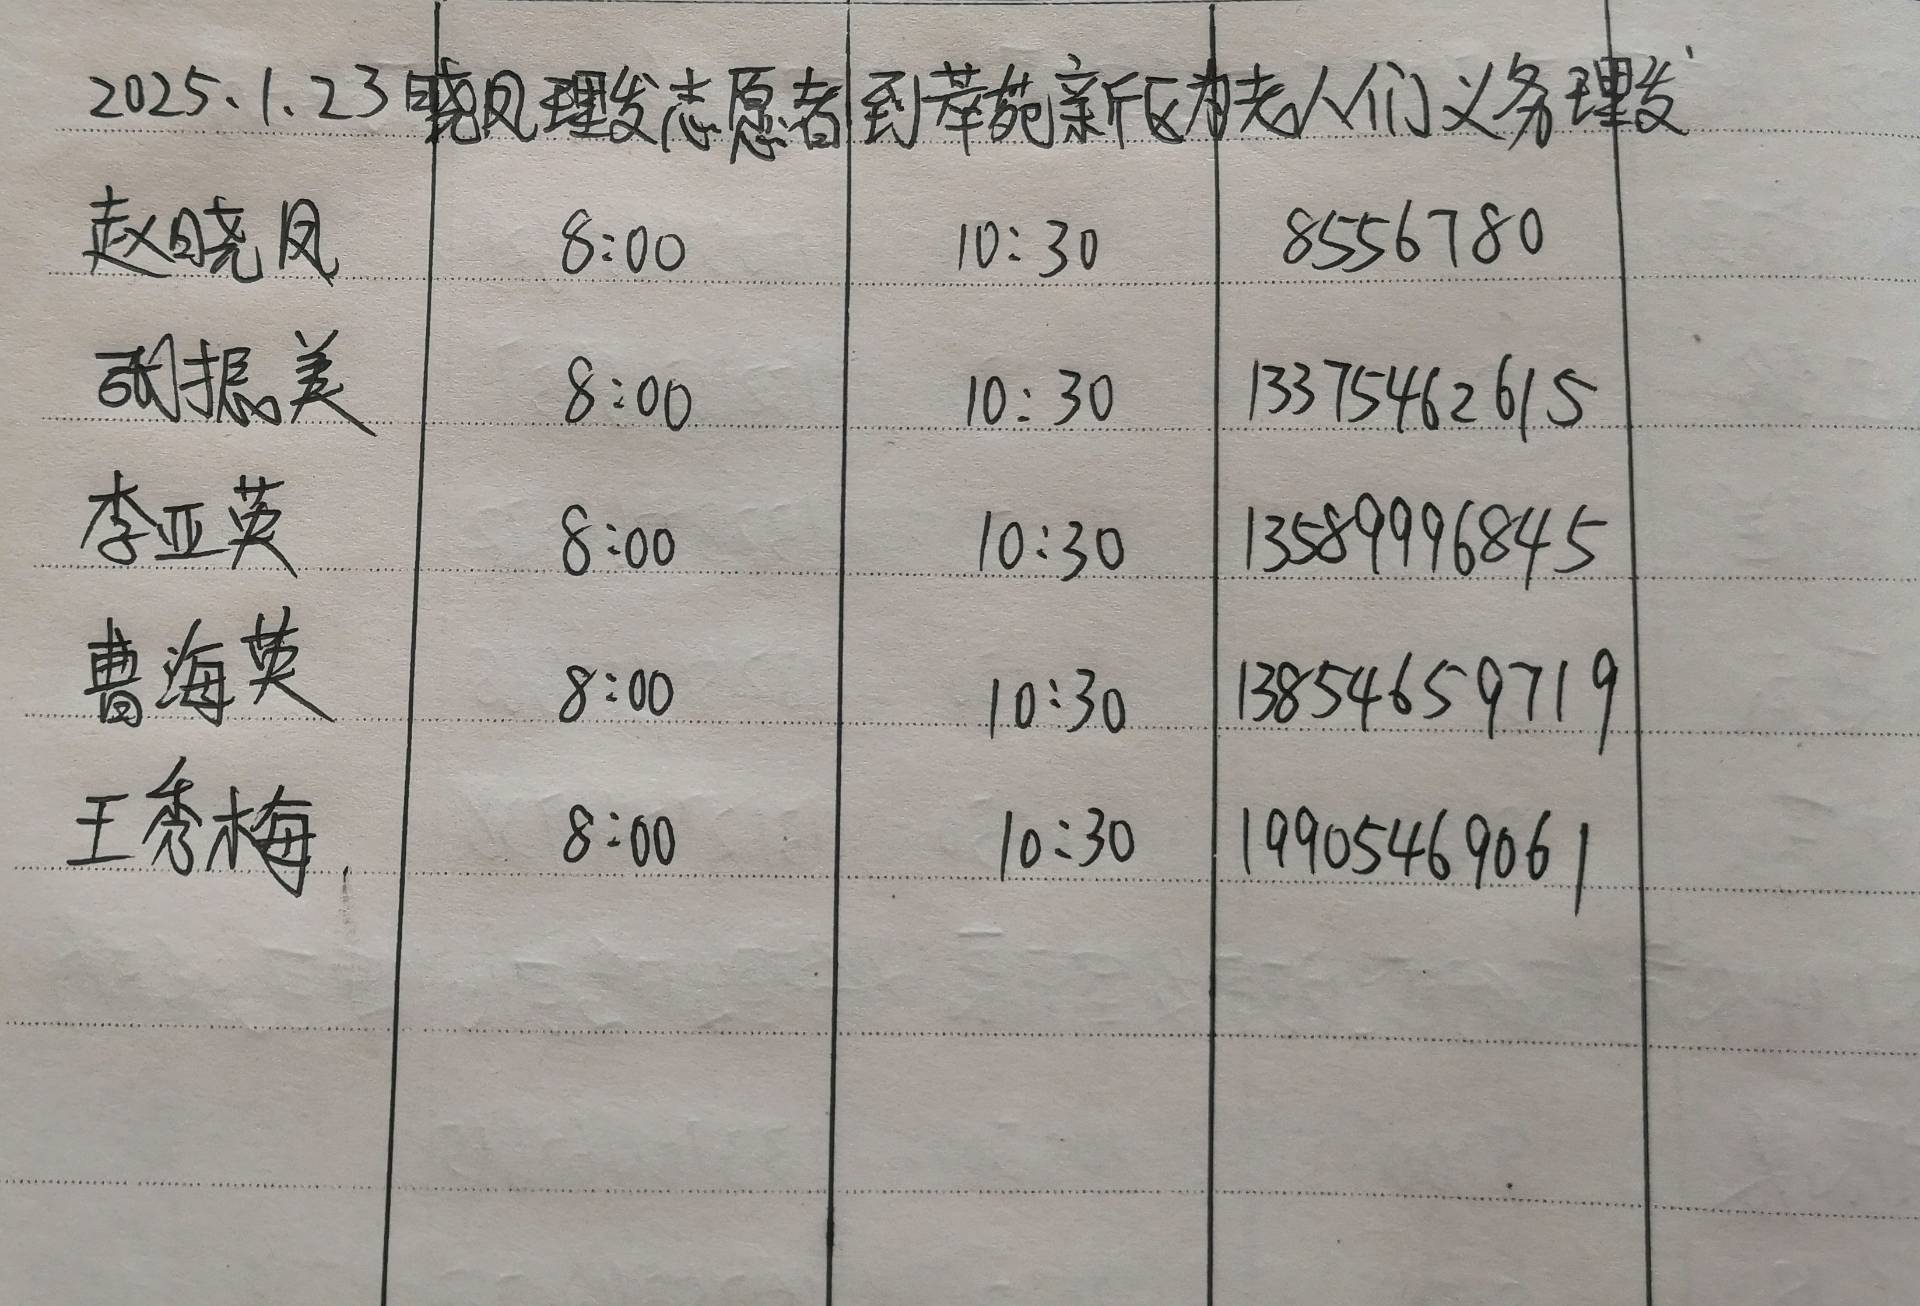 2025.1.23日晓凤理发志愿者到莘苑新区为老人们义务理发
赵晓凤 8:00 10:30 8556780
张振美 8:00 10:30 13375462615
李亚英 8:00 10:30 13589996845
曹海英 8:00 10:30 13854659719
王秀梅 8:00 10:30 19905469061